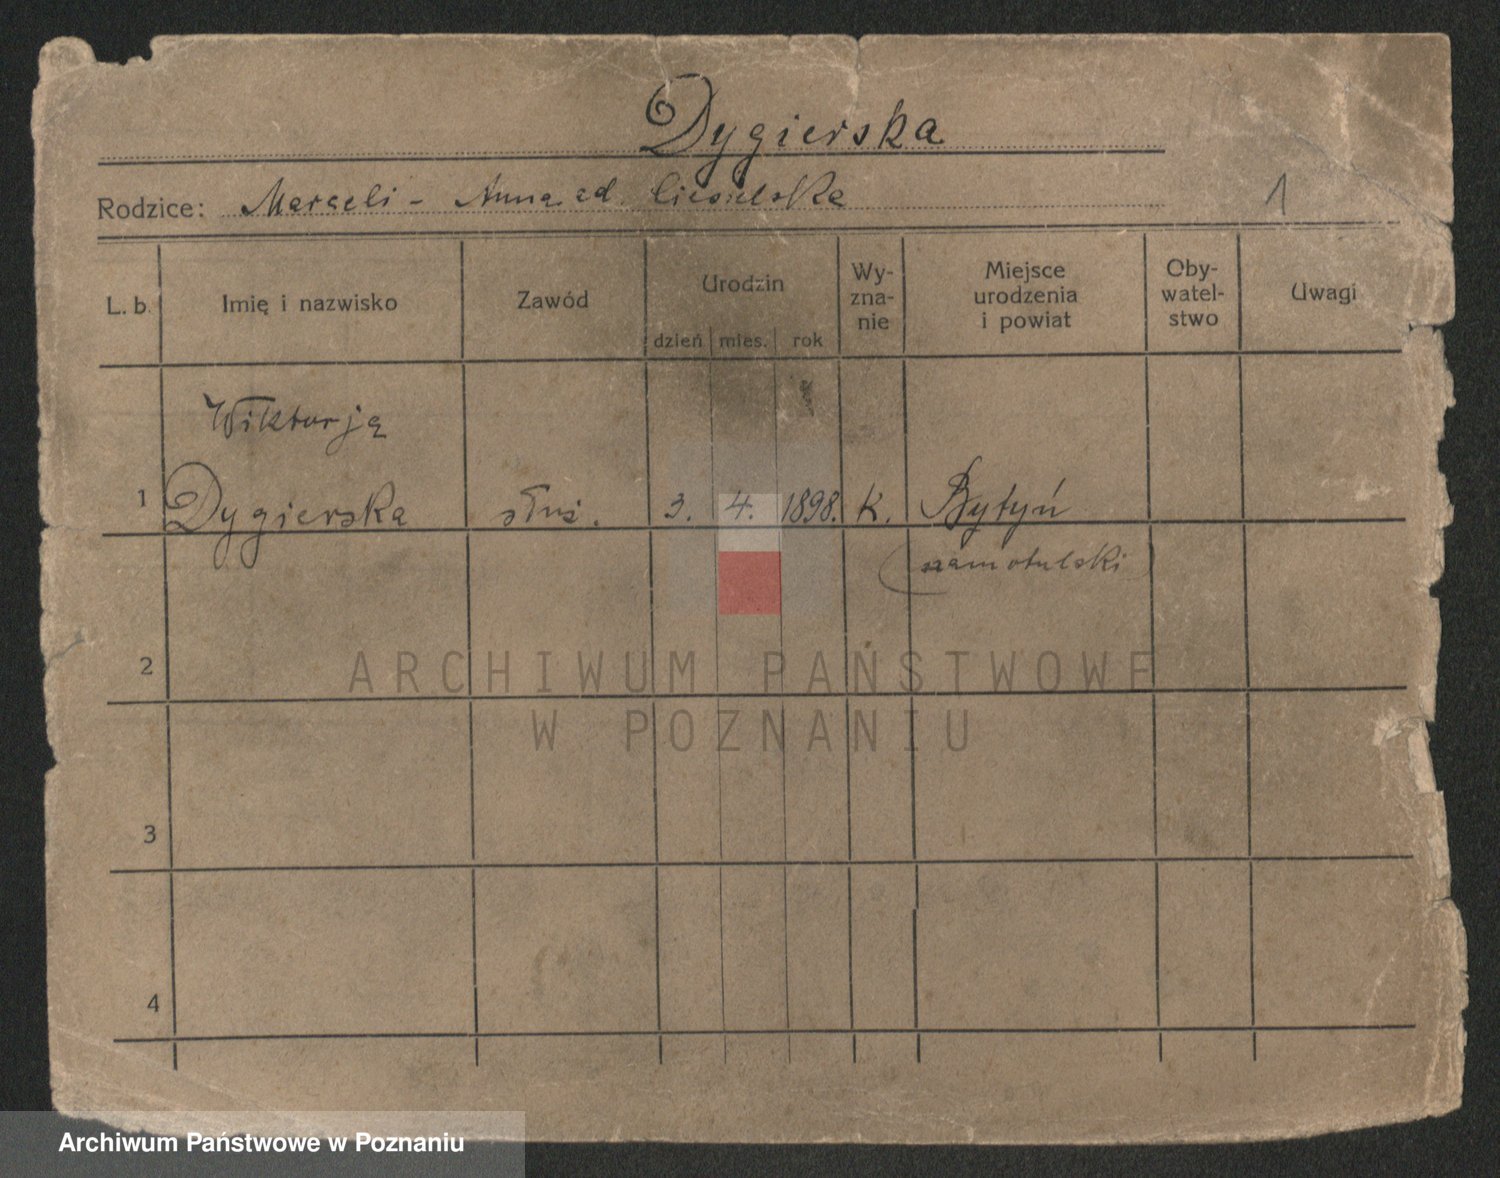 Dygierska
Rodzice: Marceli - Anna Ciesielska
1
L. b. Imię i nazwisko Zawód Urodzin dzień mies. rok Wy-zna-nie Miejsce urodzenia i powiat Oby-watel-stwo Uwagi
Wiktorja
1 Dygierska służ. 3. 4. 1898. k. Bytyń
(szamotulski)
2
ARCHIWUM PAŃSTWOWE
W POZNANIU
3
4
Archiwum Państwowe w Poznaniu